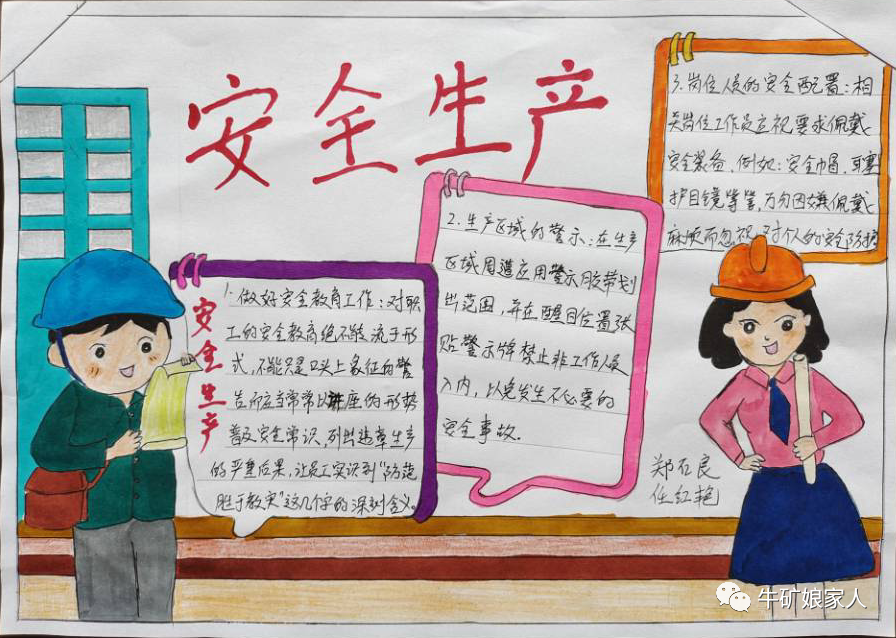 安全生产
安全生产
1.做好安全教育工作：对职
工的安全教育绝不能流于形
式，不能只是口头上象征的警
告而应当常常以讲座的形势
普及安全常识，列出违章生产
的严重后果，让员工实识到“防范
胜于救灾”这几个字的深刻含义。
2.生产区域的警示：在生产
区域周遭应用警示胶带划
出范围，并在醒目位置张
贴警示牌禁止非工作人员
入内，以免发生不必要的
安全事故。
3.岗位人员的安全配置：相
关岗位工作员应视要求佩戴
安全装备，例如：安全帽，耳塞
护目镜等等，万勿因嫌佩戴
麻烦而忽视对个人的安全防护
郑石良
任红艳
牛矿娘家人